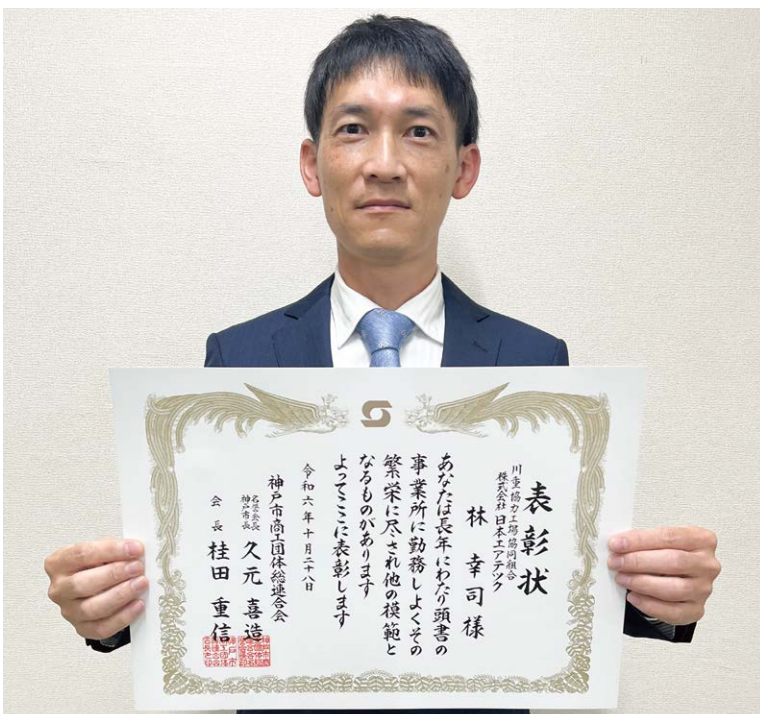 表彰状
川重協力工場協同組合
株式会社 日本エアテック
林 幸司 様
あなたは長年にわたり頭書の
事業所に勤務しよくその
繁栄に尽され他の模範と
なるものがあります
よってここに表彰します
令和六年十月二十八日
神戸市商工団体総連合会
名誉会長
神戸市長
久元 喜造
会長 桂田 重信